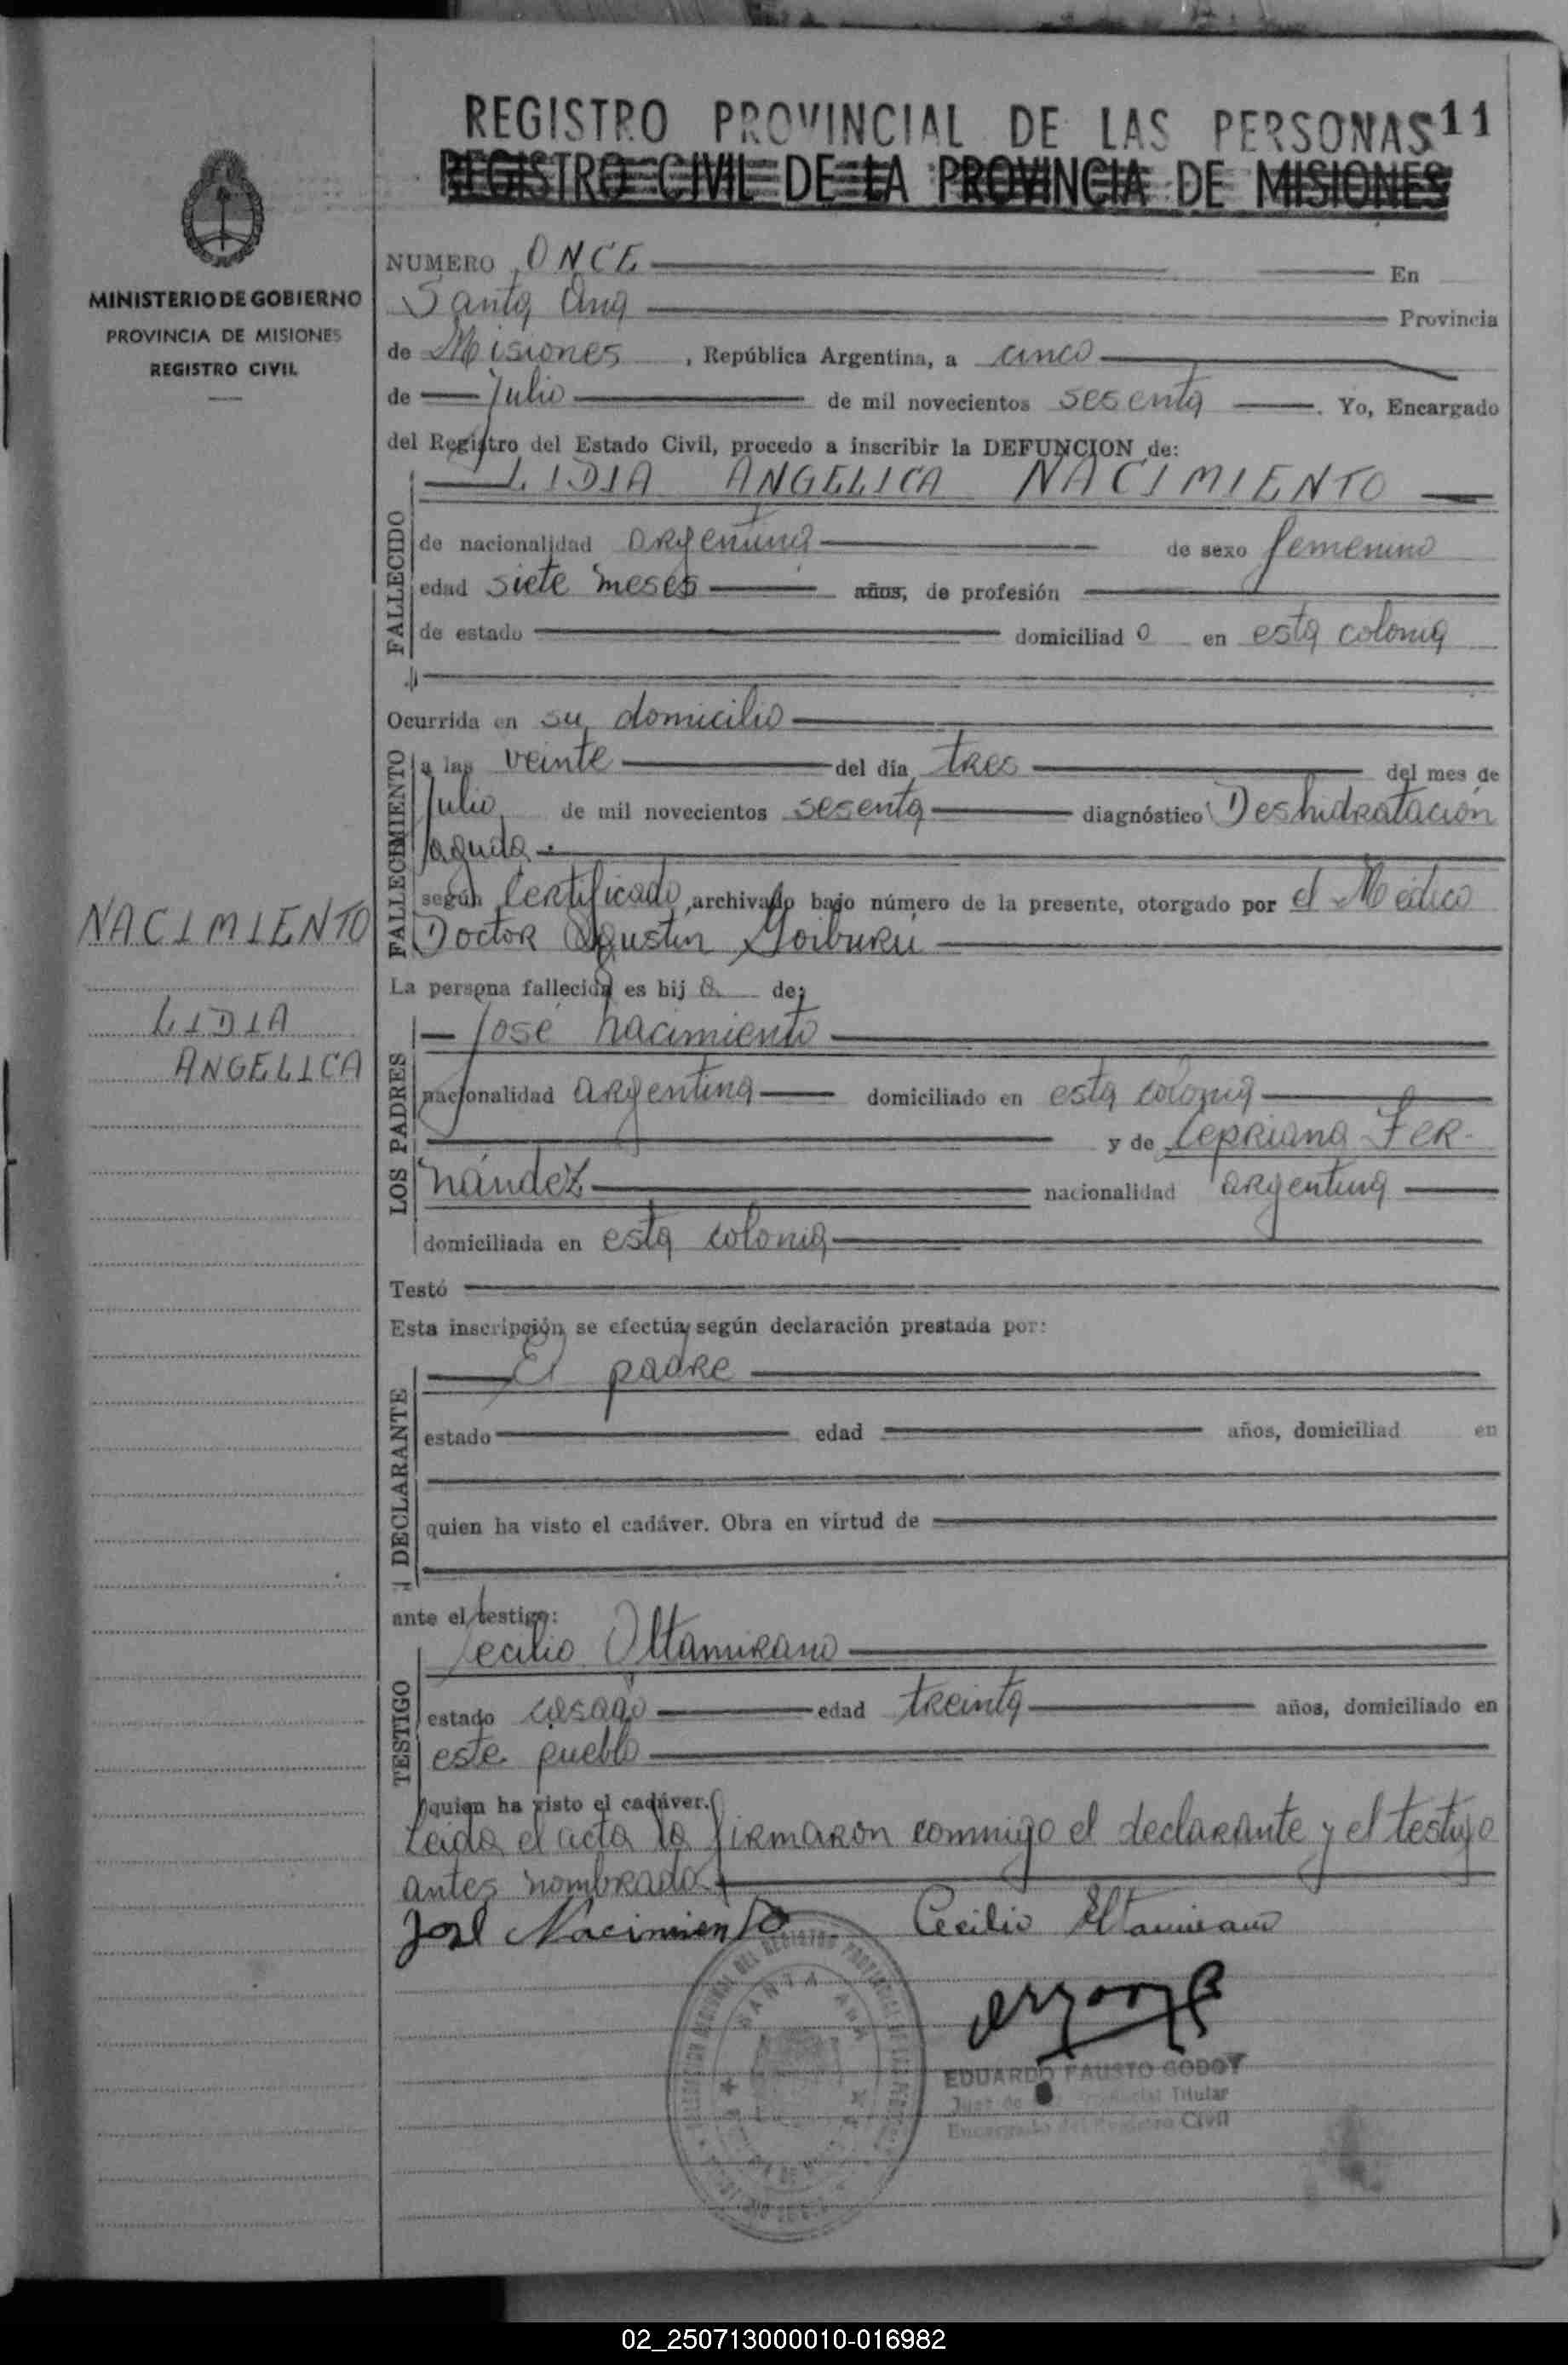 REGISTRO PROVINCIAL DE LAS PERSONAS 11
REGISTRO CIVIL DE LA PROVINCIA DE MISIONES
MINISTERIO DE GOBIERNO
PROVINCIA DE MISIONES
REGISTRO CIVIL
NUMERO ONCE En
Santa Ana Provincia
de Misiones, República Argentina, a cinco
de Julio de mil novecientos sesenta. Yo, Encargado
del Registro del Estado Civil, procedo a inscribir la DEFUNCION de:
FALLECIDO
LIDIA ANGELICA NACIMIENTO
de nacionalidad argentina de sexo femenino
edad siete meses años, de profesión
de estado domiciliad o en esta colonia
Ocurrida en su domicilio
FALLECIMIENTO
a las veinte del día tres del mes de
Julio de mil novecientos sesenta diagnóstico Deshidratación
aguda.
según Certificado, archivado bajo número de la presente, otorgado por el Médico
Doctor Agustin Goiburú
NACIMIENTO
LIDIA
ANGELICA
La persona fallecida es hij a de:
LOS PADRES
José Nacimiento
nacionalidad argentina domiciliado en esta colonia
y de Cepriana Fer-
nández nacionalidad argentina
domiciliada en esta colonia
Testó
Esta inscripción se efectúa según declaración prestada por:
DECLARANTE
El padre
estado edad años, domiciliad en
quien ha visto el cadáver. Obra en virtud de
ante el testigo:
TESTIGO
Cecilio Altamirano
estado casado edad treinta años, domiciliado en
este pueblo
quien ha visto el cadáver.
Leida el acta la firmaron conmigo el declarante y el testigo
antes nombrado.
José Nacimiento Cecilio Altamirano
SANTA ANA
EDUARDO FAUSTO GODOY
Titular
Encargado del Registro Civil
02_250713000010-016982